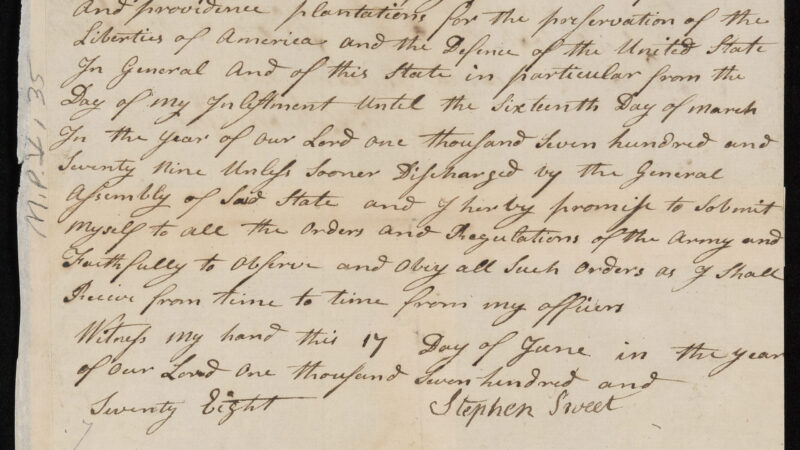 And providence plantations for the preservation of the
Liberties of America and the Defence of the United State
In General And of this State in particular from the
Day of my Inlistment Until the Sixteenth Day of march
In the year of our Lord one thousand Seven hundred and
Seventy Nine Unless Sooner Discharged by the General
Assembly of Said State and I herby promise to Sobmit
myself to all the Orders and Regulations of the Army and
Faithfully to Observe and Obey all Such Orders as I Shall
Receive from time to time from my officers
Witness my hand this 17 Day of June in the year
of our Lord One thousand Seven hundred and
Seventy Eight Stephen Sweet